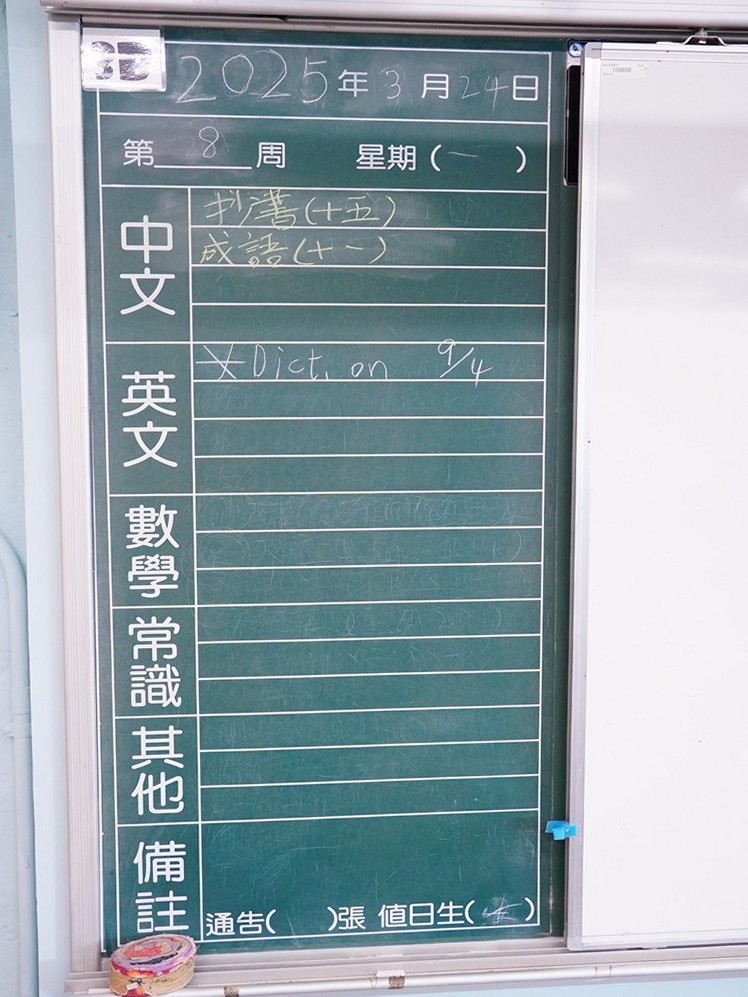 3D
2025年3月24日
第8周 星期(一)
中文
抄書(十五)
成語(十一)
英文
*Dict. on 9/4
數學
常識
其他
備註
通告( )張 值日生( )